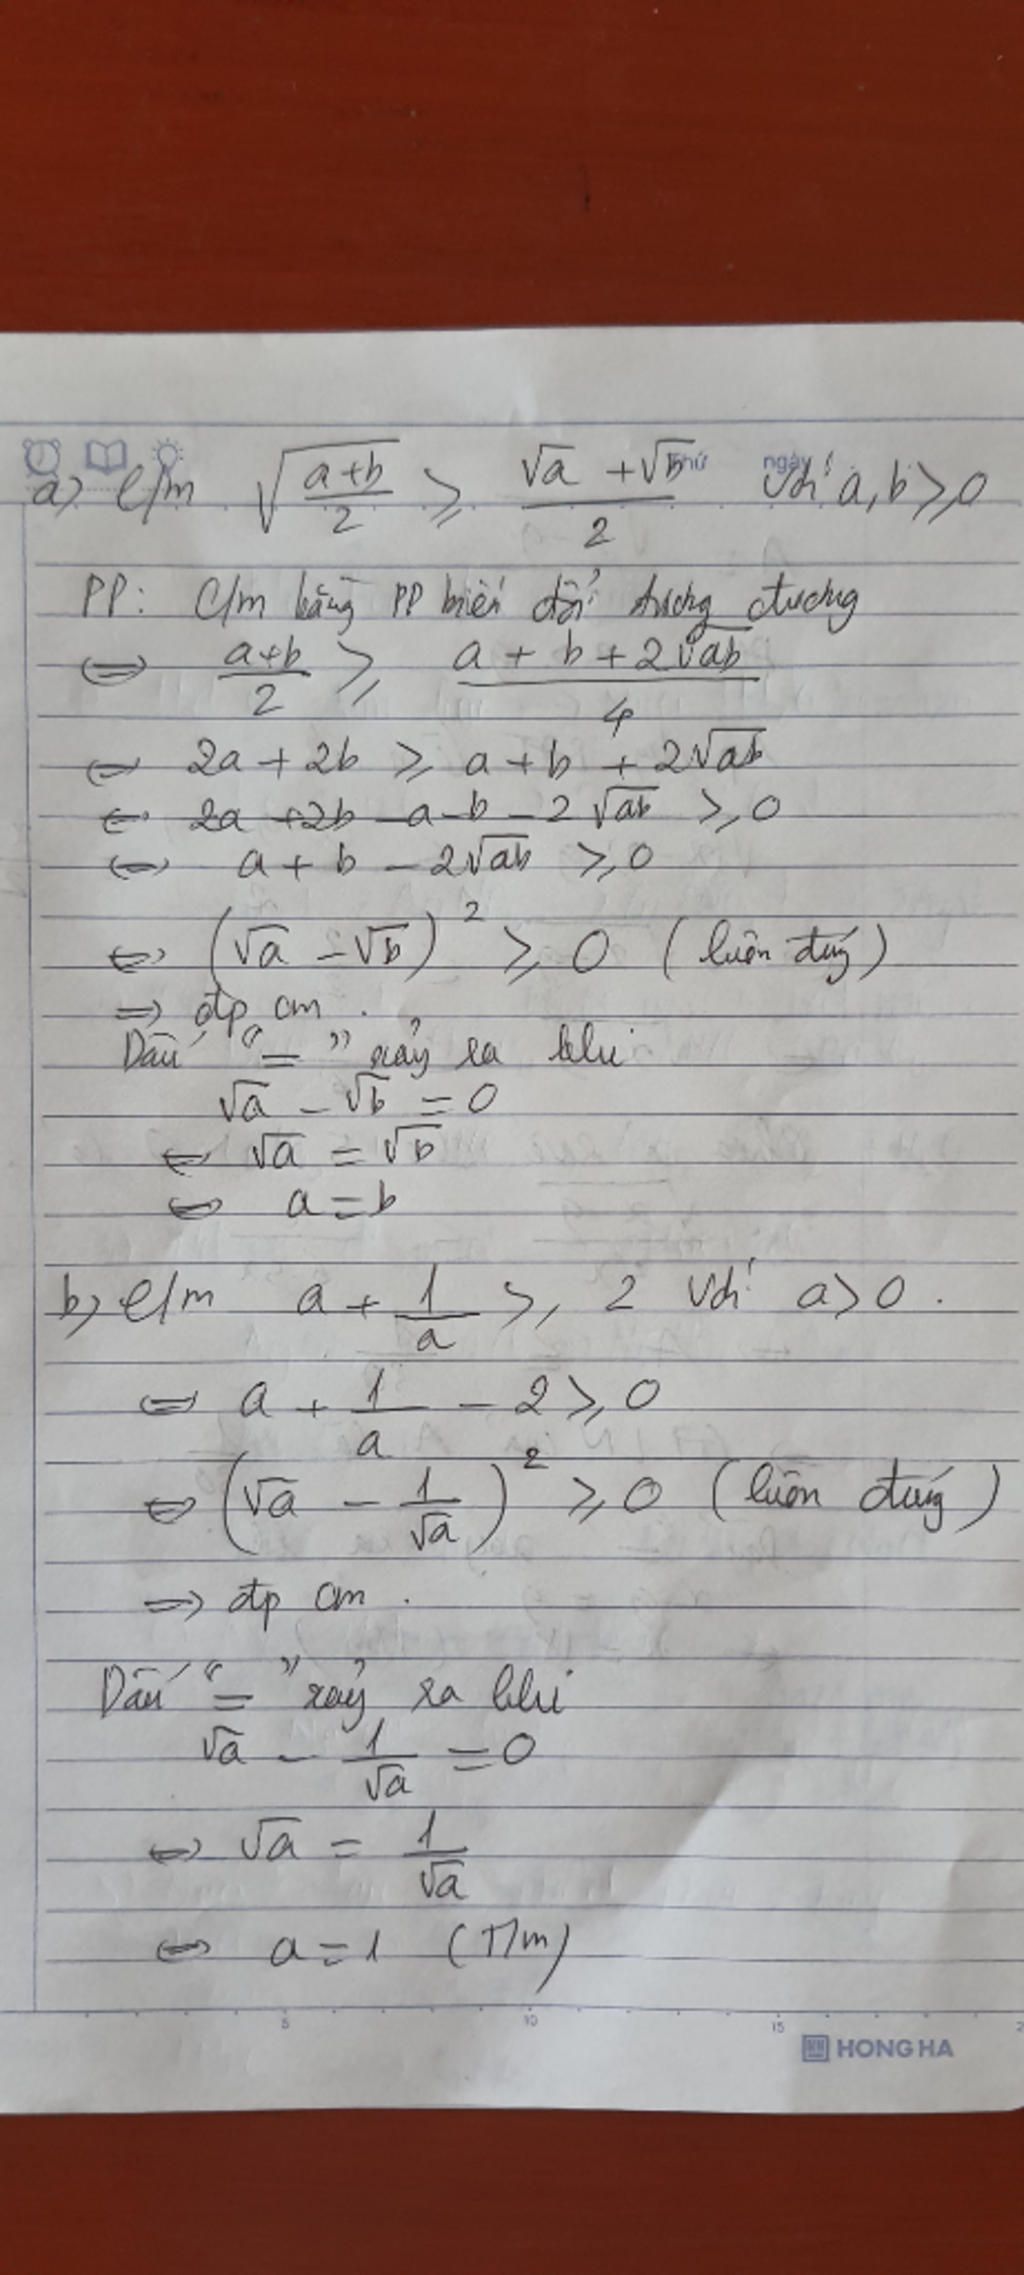 Thứ ngày
a) C/m √((a+b)/2) ≥ (√a + √b)/2 với a, b ≥ 0
PP: C/m bằng PP biến đổi tương đương
⇔ (a+b)/2 ≥ (a + b + 2√ab)/4
⇔ 2a + 2b ≥ a + b + 2√ab
⇔ 2a + 2b - a - b - 2√ab ≥ 0
⇔ a + b - 2√ab ≥ 0
⇔ (√a - √b)² ≥ 0 (luôn đúng)
⇒ đpcm.
Dấu "=" xảy ra khi
√a - √b = 0
⇔ √a = √b
⇔ a = b
b) C/m a + 1/a ≥ 2 với a > 0.
⇔ a + 1/a - 2 ≥ 0
⇔ (√a - 1/√a)² ≥ 0 (luôn đúng)
⇒ đpcm.
Dấu "=" xảy ra khi
√a - 1/√a = 0
⇔ √a = 1/√a
⇔ a = 1 (T/m)
5 10 15 2
HONG HA